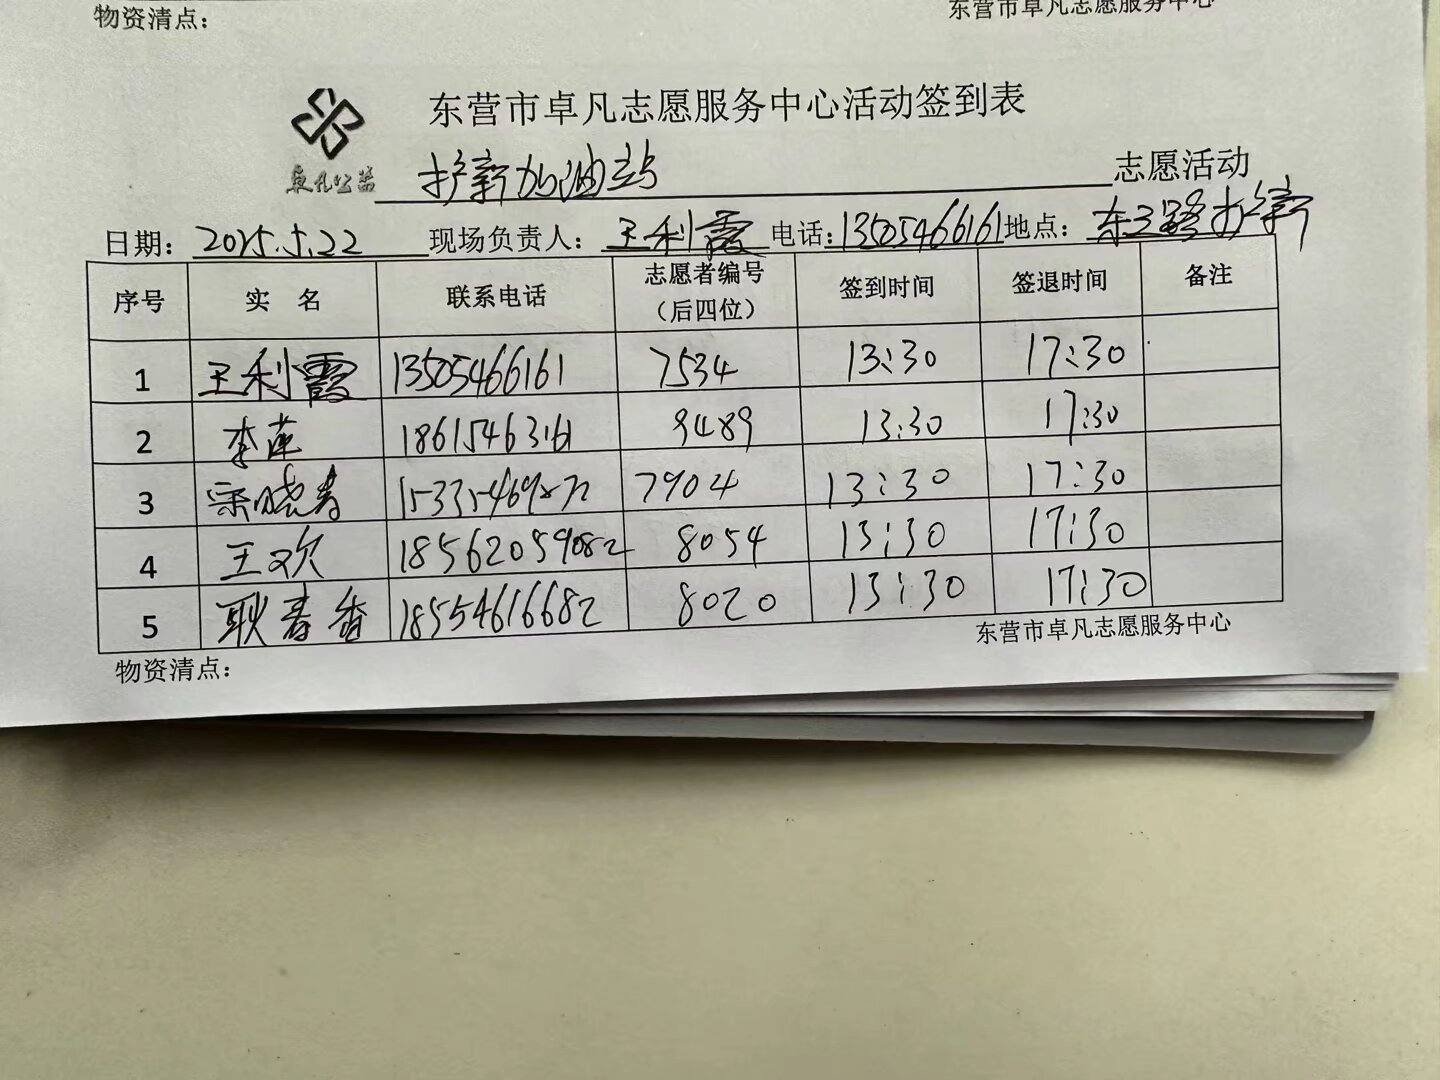 物资清点：
东营市卓凡志愿服务中心
东营市卓凡志愿服务中心活动签到表
卓凡公益
护薪加油站 志愿活动
日期：2025.5.22 现场负责人：王利霞 电话：13505466161 地点：东三路护薪
序号 实 名 联系电话 志愿者编号（后四位） 签到时间 签退时间 备注
1 王利霞 13505466161 7534 13:30 17:30
2 李莲 18615463161 9489 13:30 17:30
3 宋晓春 7904 13:30 17:30
4 王欢 18562059082 8054 13:30 17:30
5 耿春香 18554616682 8020 13:30 17:30
物资清点：
东营市卓凡志愿服务中心